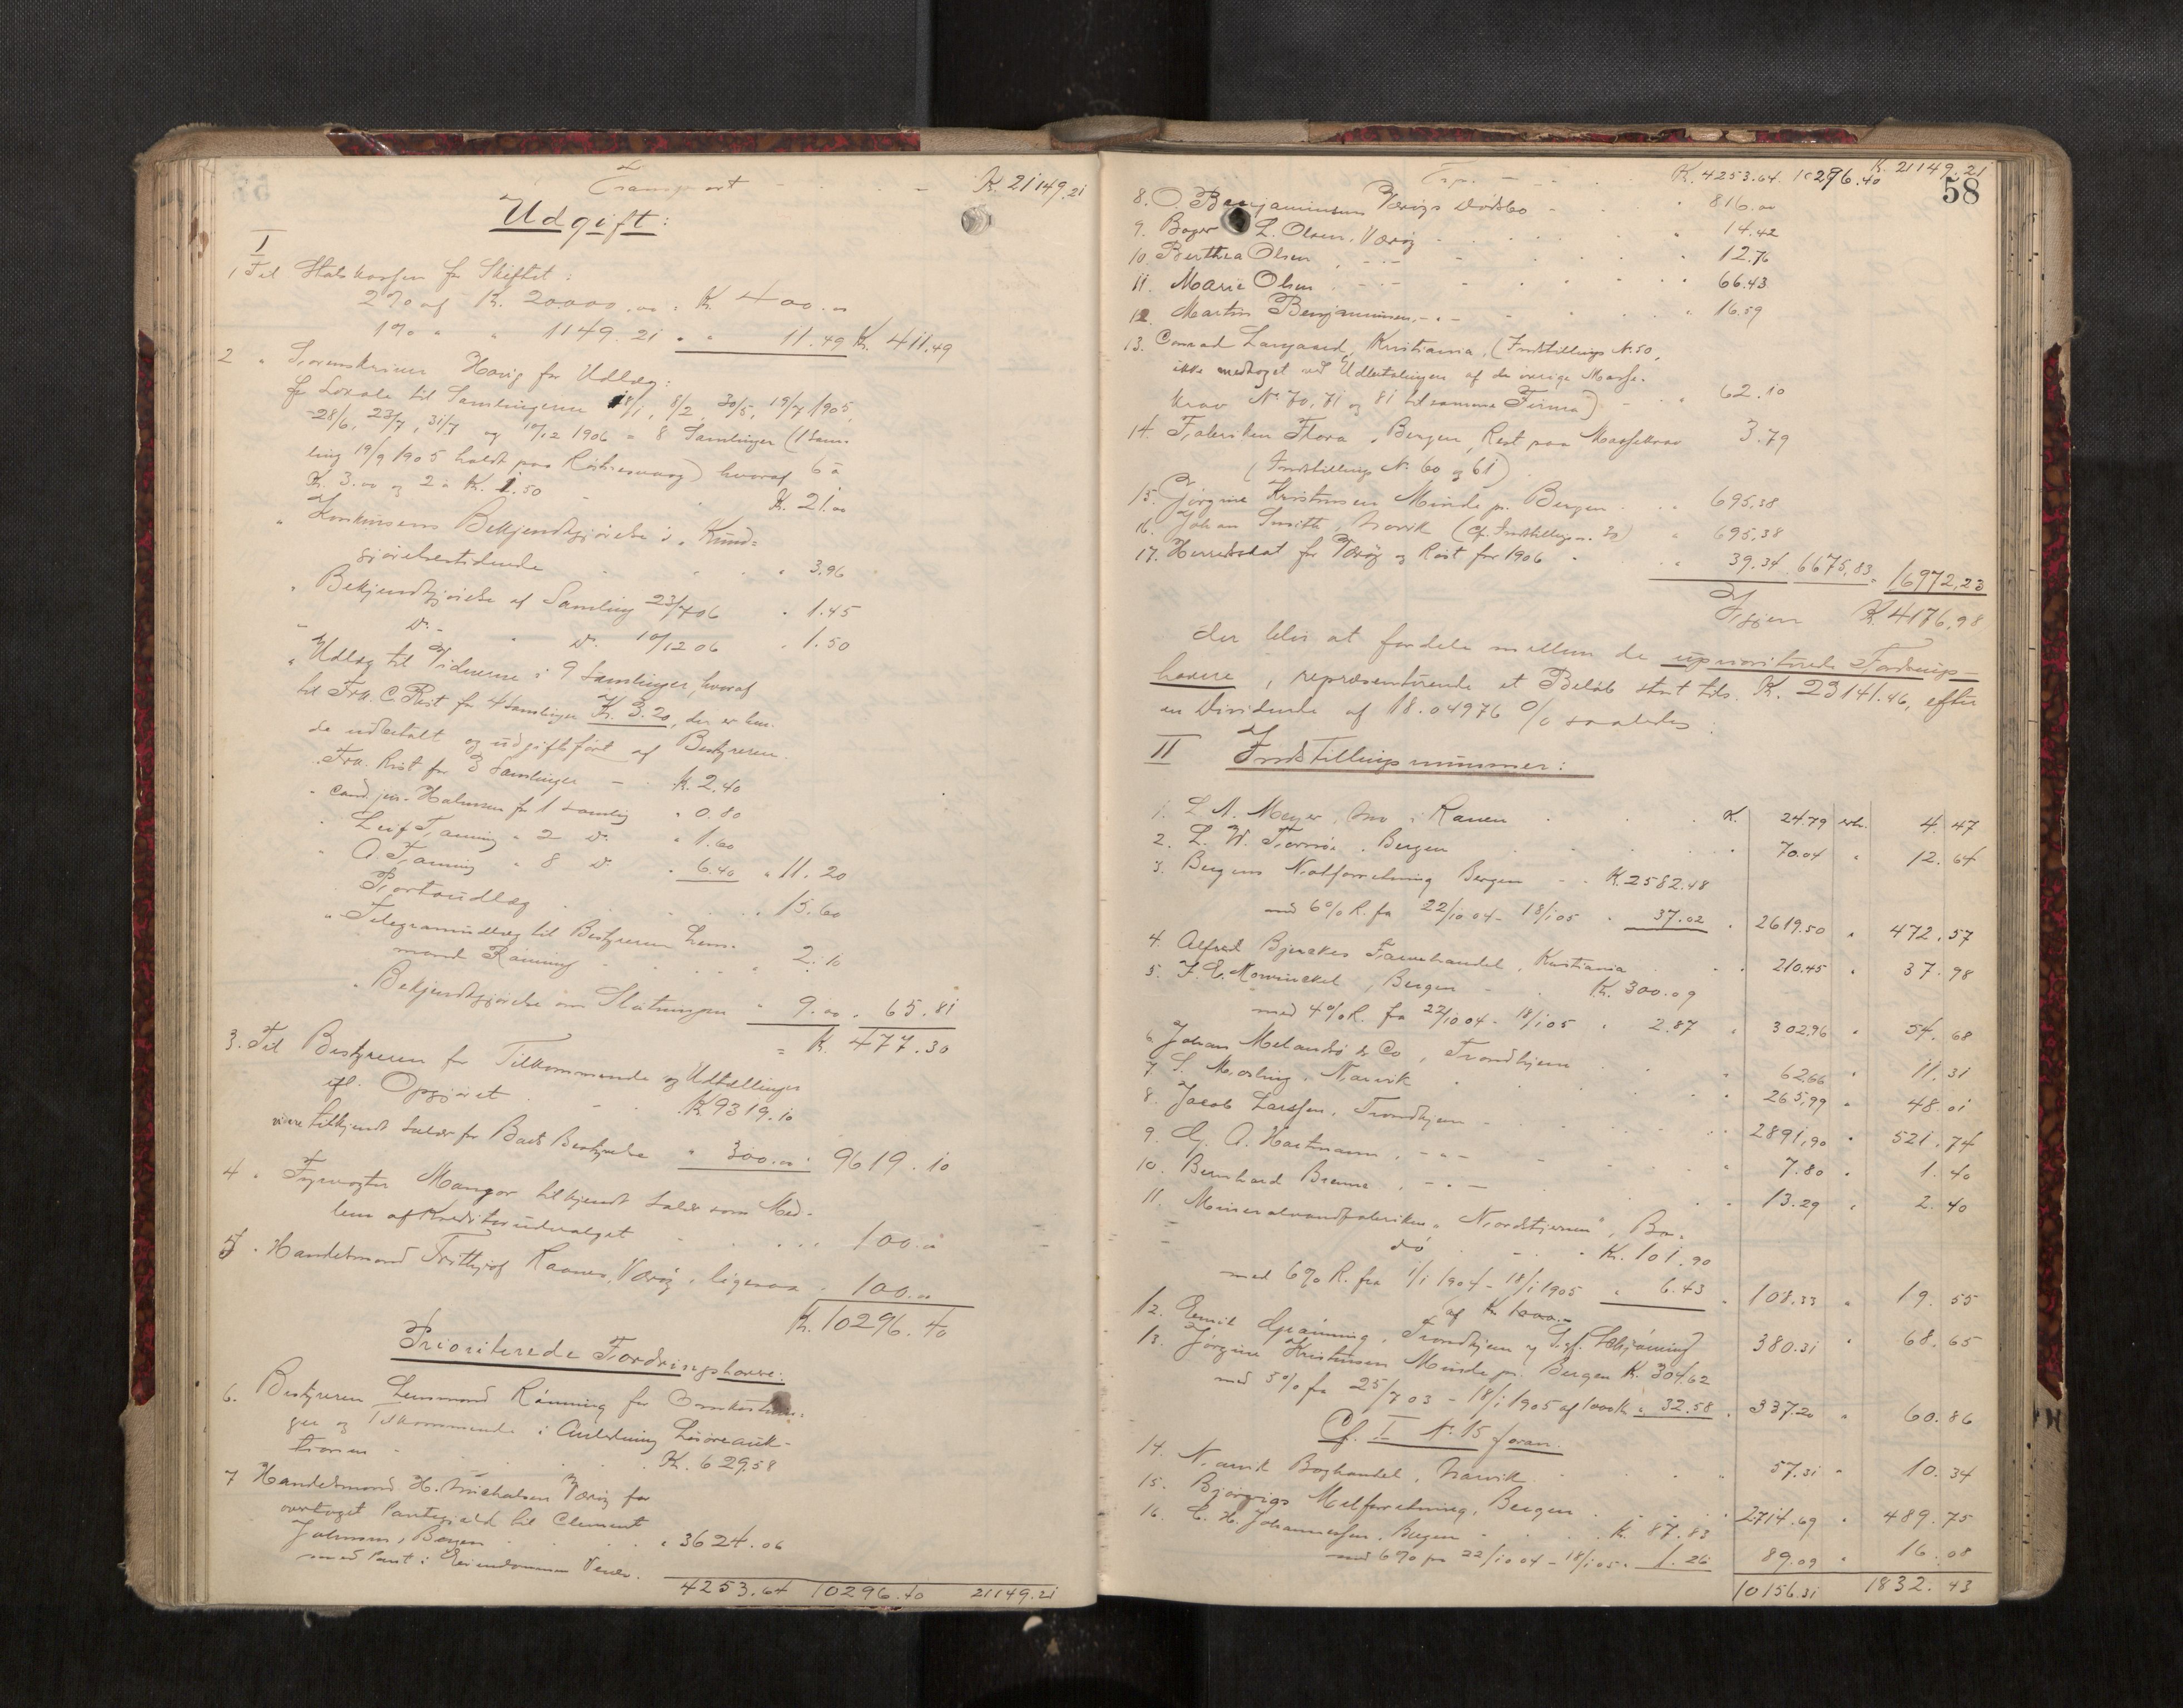 Transport K. 21149.21
Udgift:
I
1 Til Statskassen for Skiftet:
2% af K. 20000.00 = K. 400.00
1% " " 1149.21 " " 11.49 K. 411.49
2 " Sorenskriver Havig for Udlæg:
for Lokale til Samlingerne 18/1, 8/2, 30/5, 19/7 1905,
28/6, 23/7, 31/7 og 10/12 1906 = 8 Samlinger (1 Sam-
ling 19/9 1905 holdt paa Røstnesvaag) hvoraf 6 à
K. 3.00 og 2 à K. 1.50 K. 21.00
" Konkursens Bekjendtgjørelse i "Kund-
gjørelsestidende " 3.96
" Bekjendtgjørelse af Samling 23/7 06 " 1.45
" D. - " D. 10/12 06 " 1.50
" Udlæg til Vidnerne i 9 Samlinger, hvoraf
til Frk. C Røst for 4 Samlinger K. 3.20, der er hen-
de udbetalt og udgiftsført af Bestyreren.
Frk. Røst for 3 Samlinger - K. 2.40
" Cand. jur. Halmsen for 1 Samling " 0.80
" Leif Fanning " 2 D. " 1.60
" A. Fanning " 8 D. " 6.40 " 11.20
Portoudlæg " 15.60
" Telegramudlæg til Bestyreren Lens-
mand Rånning " 2.10
" Bekjendtgjørelse om Slutningen " 9.00 " 65.81
= K. 477.30
3. Til Bestyreren for Tilkommende og Udtællinger
ifl. Opgjøret K 9319.10
videre tilkjendt Salær for Boets Bestyrelse " 300.00 " 9619.10
4 " Fyrvogter Mangor tilkjendt Salær som Med-
lem af Kreditorudvalget 100.00
5 " Handelsmand Frithjof Raanes, Værøy, ligesaa 100.00
K. 10296.40
Prioriterede Fordringshavere:
6. Bestyreren Lensmand Rånning for Omkostnin-
ger og Tilkommende i Anledning Løsøreauk-
tionen K. 629.58
7 Handelsmand H. Michalsen Værøy for
overtaget Pantegjæld til Clement
Johnsen, Bergen " 3624.06
med Pant i Eiendommen
4253.64 10296.40 21149.21
58
Trp. K. 4253.64 10296.40 K. 21149.21
8. O. Benjaminsens Værøys Dødsbo " 816.00
9. Bager L. Olsen, Værøy " 14.42
10. Berthea Olsen, -"- " 12.76
11. Marie Olsen -"- " 66.43
12. Martin Benjaminsen, -"- " 16.59
13. Conrad Langaard, Kristiania, (Indstillings N. 50,
ikke medtaget ved Udbetalingen af de øvrige Masse-
krav N. 70, 71 og 81 til samme Firma) " 62.10
14. Fabriken Flora, Bergen, Rest paa Massekrav 3.79
(Indstillings N. 60 og 61)
15. Jørgine Kristensen Minde pr. Bergen " 695.38
16. Johan Smith, Narvik (Cf. Indstillings n. 30) " 695.38
17. Herredsskat for Værøy og Røst for 1906 " 39.34 6675.83 " 16972.23
Igjen K. 4176.98
der blir at fordele mellem de uprioriterede Fordrings-
havere, repræsenterende et Beløb stort tils. K. 23141.46, efter
en Dividende af 18.04976 % saaledes:
II Indstillingsnummer:
1. L. A. Meyer, Mo i Ranen K. 24.79 erh. 4.47
2. L. W. Formøe, Bergen 70.04 " 12.64
3. Bergens Notforretning Bergen - K. 2582.48
med 6% R. fra 22/10 04 - 18/1 05 " 37.02 " 2619.50 " 472.57
4. Alfred Bjerckes Farvehandel, Kristiania " 210.45 " 37.98
5. F. E. Mowinckel, Bergen - K. 300.09
med 4% R. fra 22/10 04 - 18/1 05 " 2.87 " 302.96 " 54.68
6. Johan Melandsø & Co, Trondhjem " 62.66 " 11.31
7. S. Mosling, Narvik " 265.99 " 48.01
8. Jacob Larssen, Trondhjem " 2891.90 " 521.74
9. G. A. Hartmann, -"- " 7.80 " 1.40
10. Bernhard Brenne, -"- " 13.29 " 2.40
11. Mineralvandfabriken "Nordstjernen", Bo-
dø K. 101.90
med 6% R. fra 1/1 1904 - 18/1 1905 " 6.43 " 108.33 " 19.55
af K. 1000.-
12. Emil Grånning, Trondhjem 380.31 " 68.65
13. Jørgine Kristensen Minde pr. Bergen K. 304.62
med 5% fra 25/7 03 - 18/1 1905 af 1000 K " 32.58 " 337.20 " 60.86
Cf. I N. 15 foran.
14. Narvik Boghandel, Narvik " 57.31 " 10.34
15. Melforretning, Bergen 2714.69 " 489.75
16. C. H. Johannessen, Bergen K. 87.83
med 6% fra 22/10 04 - 18/1 05 " 1.26 89.09 " 16.08
10156.31 1832.43